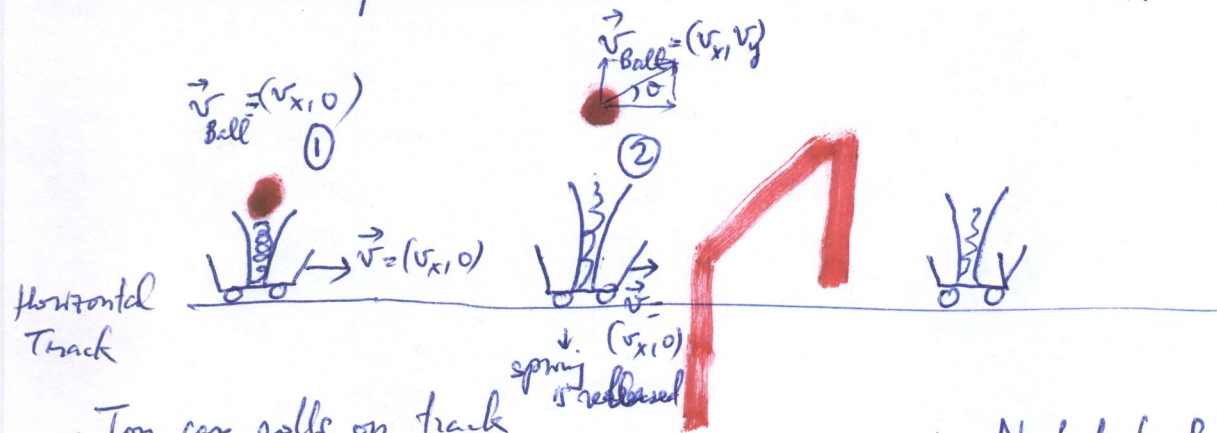 v⃗Ball = (vx, 0)
①
v⃗Ball = (vx, vy)
θ
②
v⃗ = (vx, 0)
v⃗ =
(vx, 0)
Horizontal
Track
↓
spring
is released
Toy car rolls on track